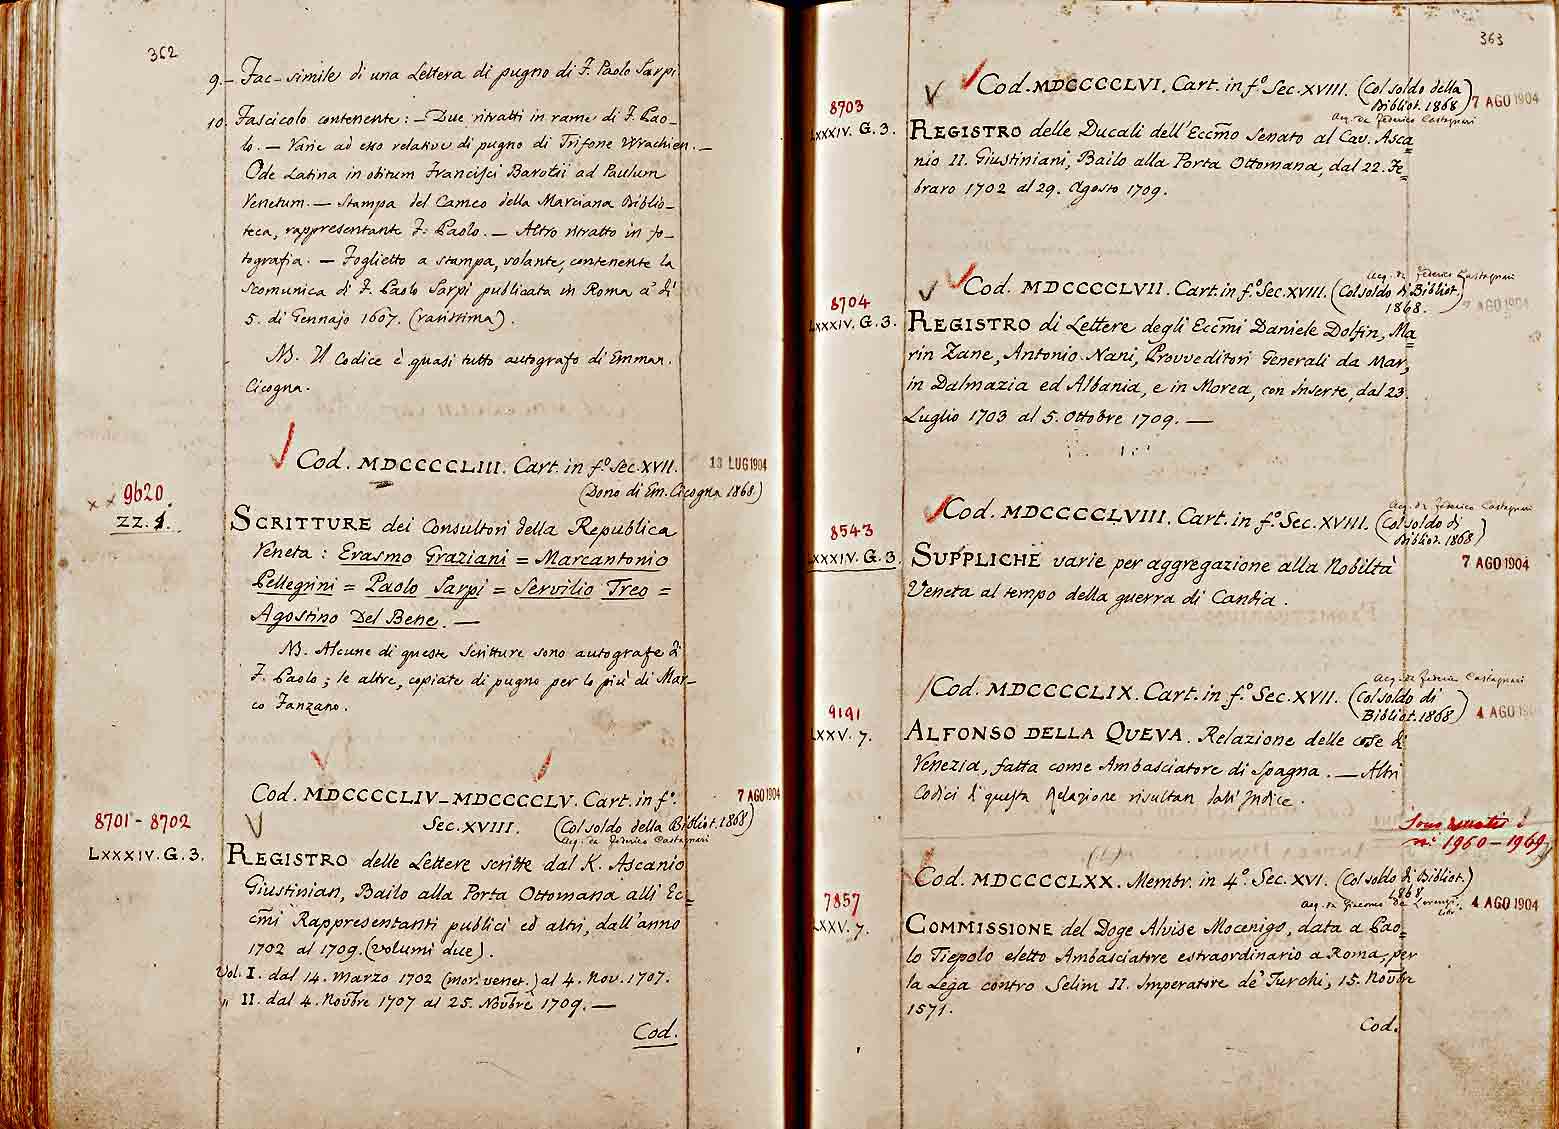 362
9.- Fac-simile di una Lettera di pugno di F. Paolo Sarpi
10. Fascicolo contenente: - Due ritratti in rame di F. Pao-
lo. - Varie ad esso relative di pugno di Trifone Wrachien. -
Ode Latina in obitum Francisci Barotii ad Paulum
Venetum. - Stampa del Cameo della Marciana Biblio-
teca, rappresentante F. Paolo. - Altro ritratto in fo-
tografia. - Foglietto a stampa, volante, contenente la
Scomunica di F. Paolo Sarpi publicata in Roma a' dì
5. di Gennajo 1607. (rarissima).
NB. Il Codice è quasi tutto autografo di Emman.
Cicogna.
Cod. MDCCCCLIII. Cart. in f.º Sec. XVII. 13 LUG 1904
(Dono di Em. Cicogna 1868)
x x 9620.
ZZ. 1.
SCRITTURE dei Consultori della Republica
Veneta: Erasmo Graziani = Marcantonio
Pellegrini = Paolo Sarpi = Servilio Treo =
Agostino Del Bene. -
NB. Alcune di queste Scritture sono autografe di
F. Paolo; le altre, copiate di pugno per lo più di Mar-
co Fanzano.
Cod. MDCCCCLIV-MDCCCCLV. Cart. in f.º 7 AGO 1904
Sec. XVIII. (Col soldo della Bibliot. 1868)
acq. da Federico Castagnari
8701 - 8702
LXXXIV. G. 3.
REGISTRO delle Lettere scritte dal K. Ascanio
Giustinian, Bailo alla Porta Ottomana alli Ec=
c̃mi Rappresentanti publici ed altri, dall'anno
1702 al 1709. (volumi due).
Vol. I. dal 14. Marzo 1702 (mor. venet.) al 4. Nov. 1707.
" II. dal 4. Noṽbre 1707 al 25. Noṽbre 1709. -
Cod.
363
Cod. MDCCCCLVI. Cart. in f.º Sec. XVIII. (Col soldo della
Bibliot. 1868) 7 AGO 1904
acq. da Federico Castagnari
8703
LXXXIV. G. 3.
REGISTRO delle Ducali dell'Ecc̃mo Senato al Cav. Asca=
nio II. Giustiniani, Bailo alla Porta Ottomana, dal 22. Fe=
braro 1702 al 29. Agosto 1709.
acq. da Federico Castagnari
Cod. MDCCCCLVII. Cart. in f.º Sec. XVIII. (Col soldo di Bibliot.
1868.) 7 AGO 1904
8704
LXXXIV. G. 3.
REGISTRO di Lettere degli Ecc̃mi Daniele Dolfin, Ma=
rin Zane, Antonio Nani, Provveditori Generali da Mar,
in Dalmazia ed Albania, e in Morea, con inserte, dal 23.
Luglio 1703 al 5. Ottobre 1709. -
acq. da Federico Castagnari
Cod. MDCCCCLVIII. Cart. in f.º Sec. XVIII. (Col soldo di
Bibliot. 1868)
7 AGO 1904
8543
LXXXIV. G. 3.
SUPPLICHE varie per aggregazione alla Nobiltà
Veneta al tempo della guerra di Candia.
acq. da Federico Castagnari
Cod. MDCCCCLIX. Cart. in f.º Sec. XVII. (Col soldo di
Bibliot. 1868) 4 AGO
9191
LXXV. 7.
ALFONSO DELLA QUEVA. Relazione delle cose di
Venezia, fatta come Ambasciatore di Spagna. - Altri
Codici di questa Relazione risultan dall'Indice.
Sono
ni 1960-1969
Cod. MDCCCCLXX. Membr. in 4.º Sec. XVI. (Col soldo di Bibliot.)
1868
acq. da Giacomo De Lorenzi 4 AGO 1904
7857
LXXV. 7.
COMMISSIONE del Doge Alvise Mocenigo, data a Pao=
lo Tiepolo eletto Ambasciatore estraordinario a Roma, per
la Lega contro Selim II. Imperatore de' Turchi; 15. Noṽbre
1571.
Cod.